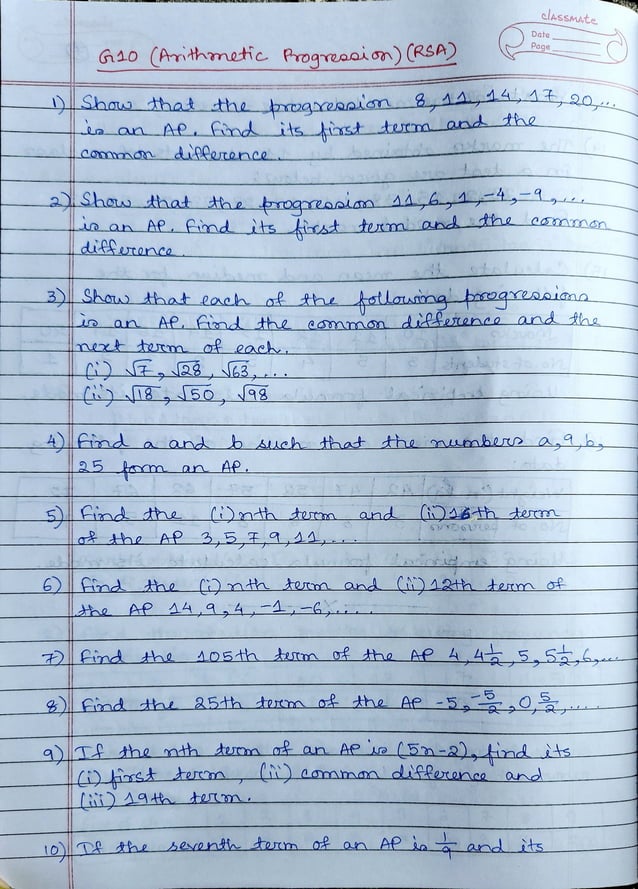 classmate
Date
Page
G10 (Arithmetic Progression) (RSA)
1) Show that the progression 8, 11, 14, 17, 20,...
is an AP. Find its first term and the
common difference.
2) Show that the progression 11, 6, 1, -4, -9, ...
is an AP. Find its first term and the common
difference.
3) Show that each of the following progressions
is an AP. Find the common difference and the
next term of each.
(i) √7, √28, √63, ...
(ii) √18, √50, √98
4) Find a and b such that the numbers a, 9, b,
25 form an AP.
5) Find the (i) nth term and (ii) 16th term
of the AP 3, 5, 7, 9, 11, ...
6) Find the (i) nth term and (ii) 12th term of
the AP 14, 9, 4, -1, -6, ....
7) Find the 105th term of the AP 4, 4 1/2, 5, 5 1/2, 6, ...
8) Find the 25th term of the AP -5, -5/2, 0, 5/2, .....
9) If the nth term of an AP is (5n-2), find its
(i) first term, (ii) common difference and
(iii) 19th term.
10) If the seventh term of an AP is 1/9 and its